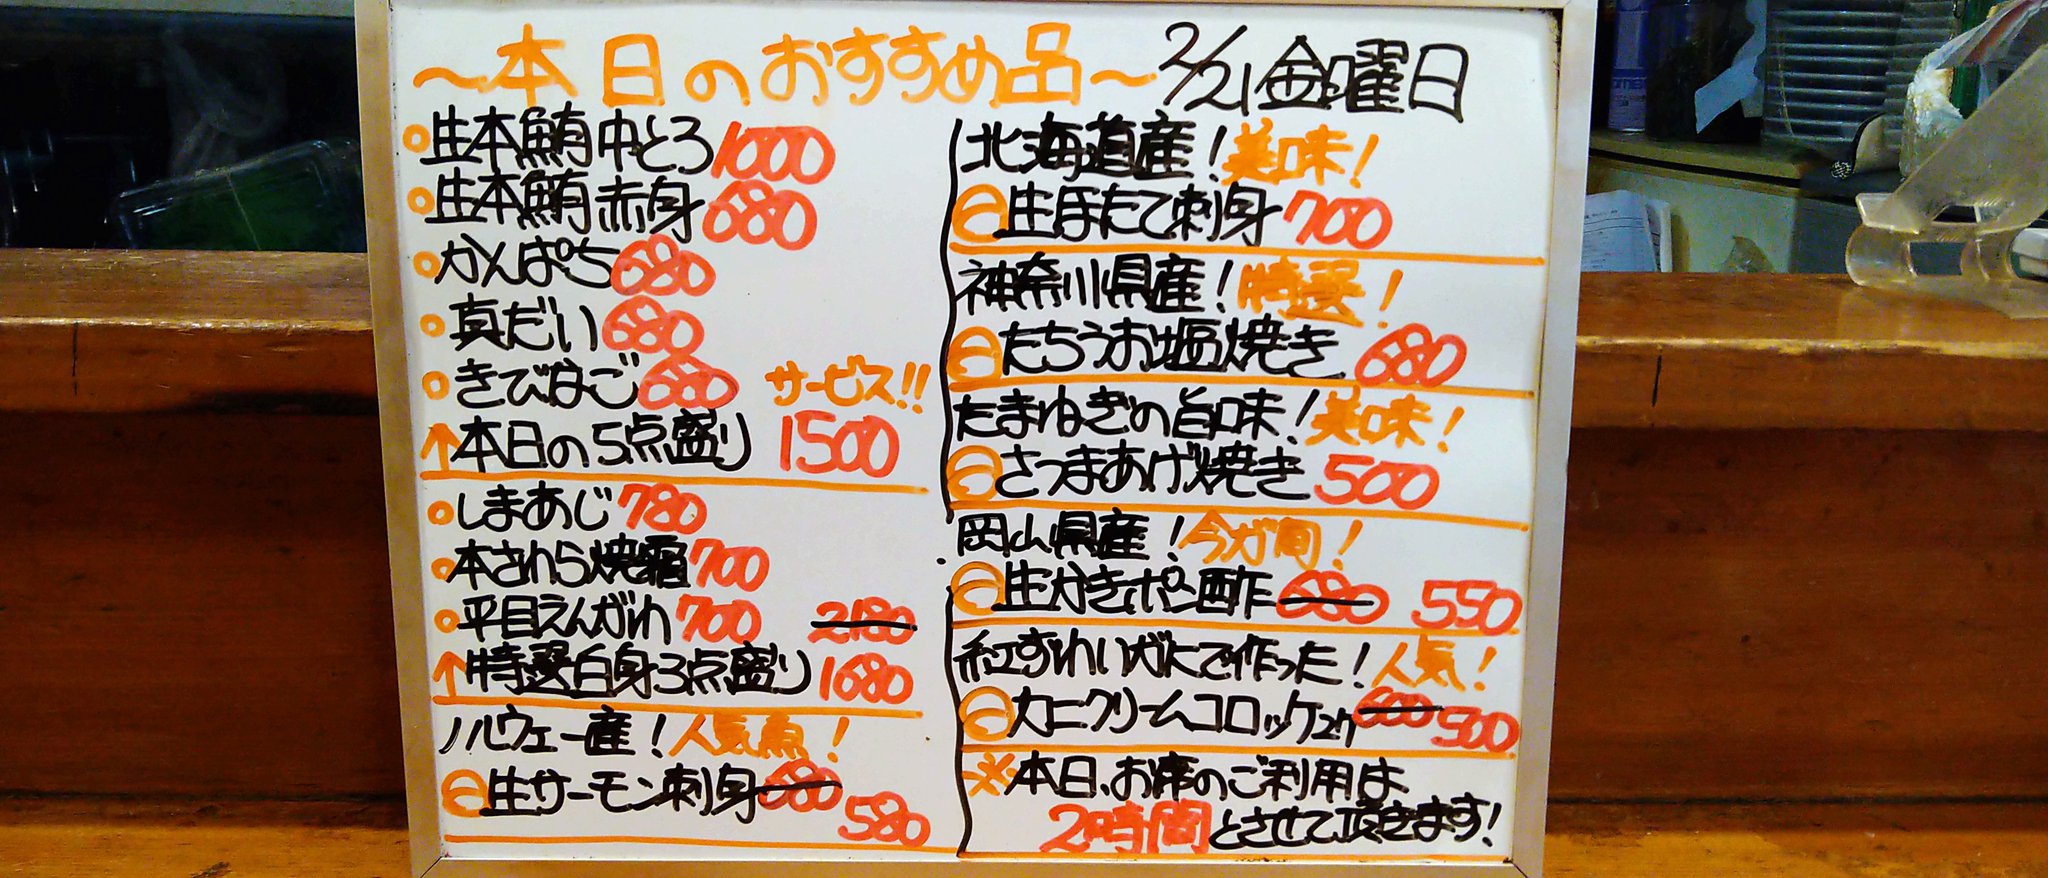 ～本日のおすすめ品～ 2/21金曜日
○生本鮪中とろ1000
○生本鮪赤身680
○かんぱち680
○真だい680
○きびなご680 サービス!!
↑本日の5点盛り 1500
○しまあじ780
○本さわら焼霜700
○平目えんがわ700 2180
↑特選白身3点盛り1680
ノルウェー産！人気魚！
生サーモン刺身680 580
北海道産！美味！
生ほたて刺身700
神奈川県産！特選！
たちうお塩焼き680
たまねぎの旨味！美味！
さつまあげ焼き500
岡山県産！今が旬！
生かきポン酢680 550
紅ずわいガニで作った！人気！
カニクリームコロッケ2ケ600 500
※本日、お席のご利用は
2時間とさせて頂きます！